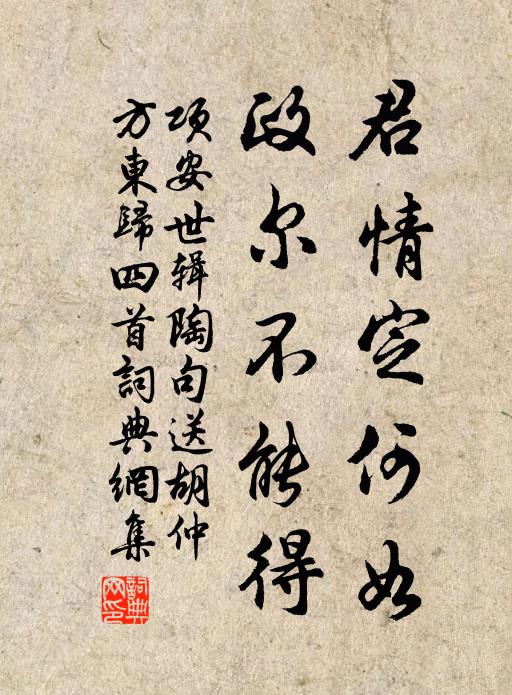 君情定何如
政尔不能得
项安世辑陶句送胡仲
方東歸四首詞典網集
詞典
网印